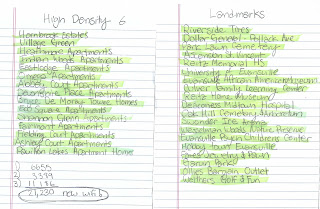 High Density 6
Hornbrook Estates
Village Green
Arrowhome Apartments
Indian Woods Apartments
Eastlodge Apartments
Omega Apartments
Abbey Court Apartments
Devonshire Place Apartments
Shores Apartments
Shannon Glenn Apartments
Fairmont Apartments
Fielding Court Apartments
Ashley Court Apartments
Pavilion Lakes Apartment Home
1) 6655
2) 3399
3) 11,136
21,230 new
Landmarks
Riverside Tires
Dollar General - Pollack Ave
Park Lawn Cemetery
Ascension St. Vincent
Reitz Memorial HS
University of Evansville
Evansville African American Museum
Culver Family Learning Center
Reitz Home Museum
Deaconess Midtown Hospital
Oak Hill Cemetery & Arboretum
Swonder Ice Arena
Wesselman Woods Nature Preserve
Evansville Psych Childrens Center
Hobby Town Evansville
Garvin Park
Ollies Bargain Outlet
Walthers Golf & Fun